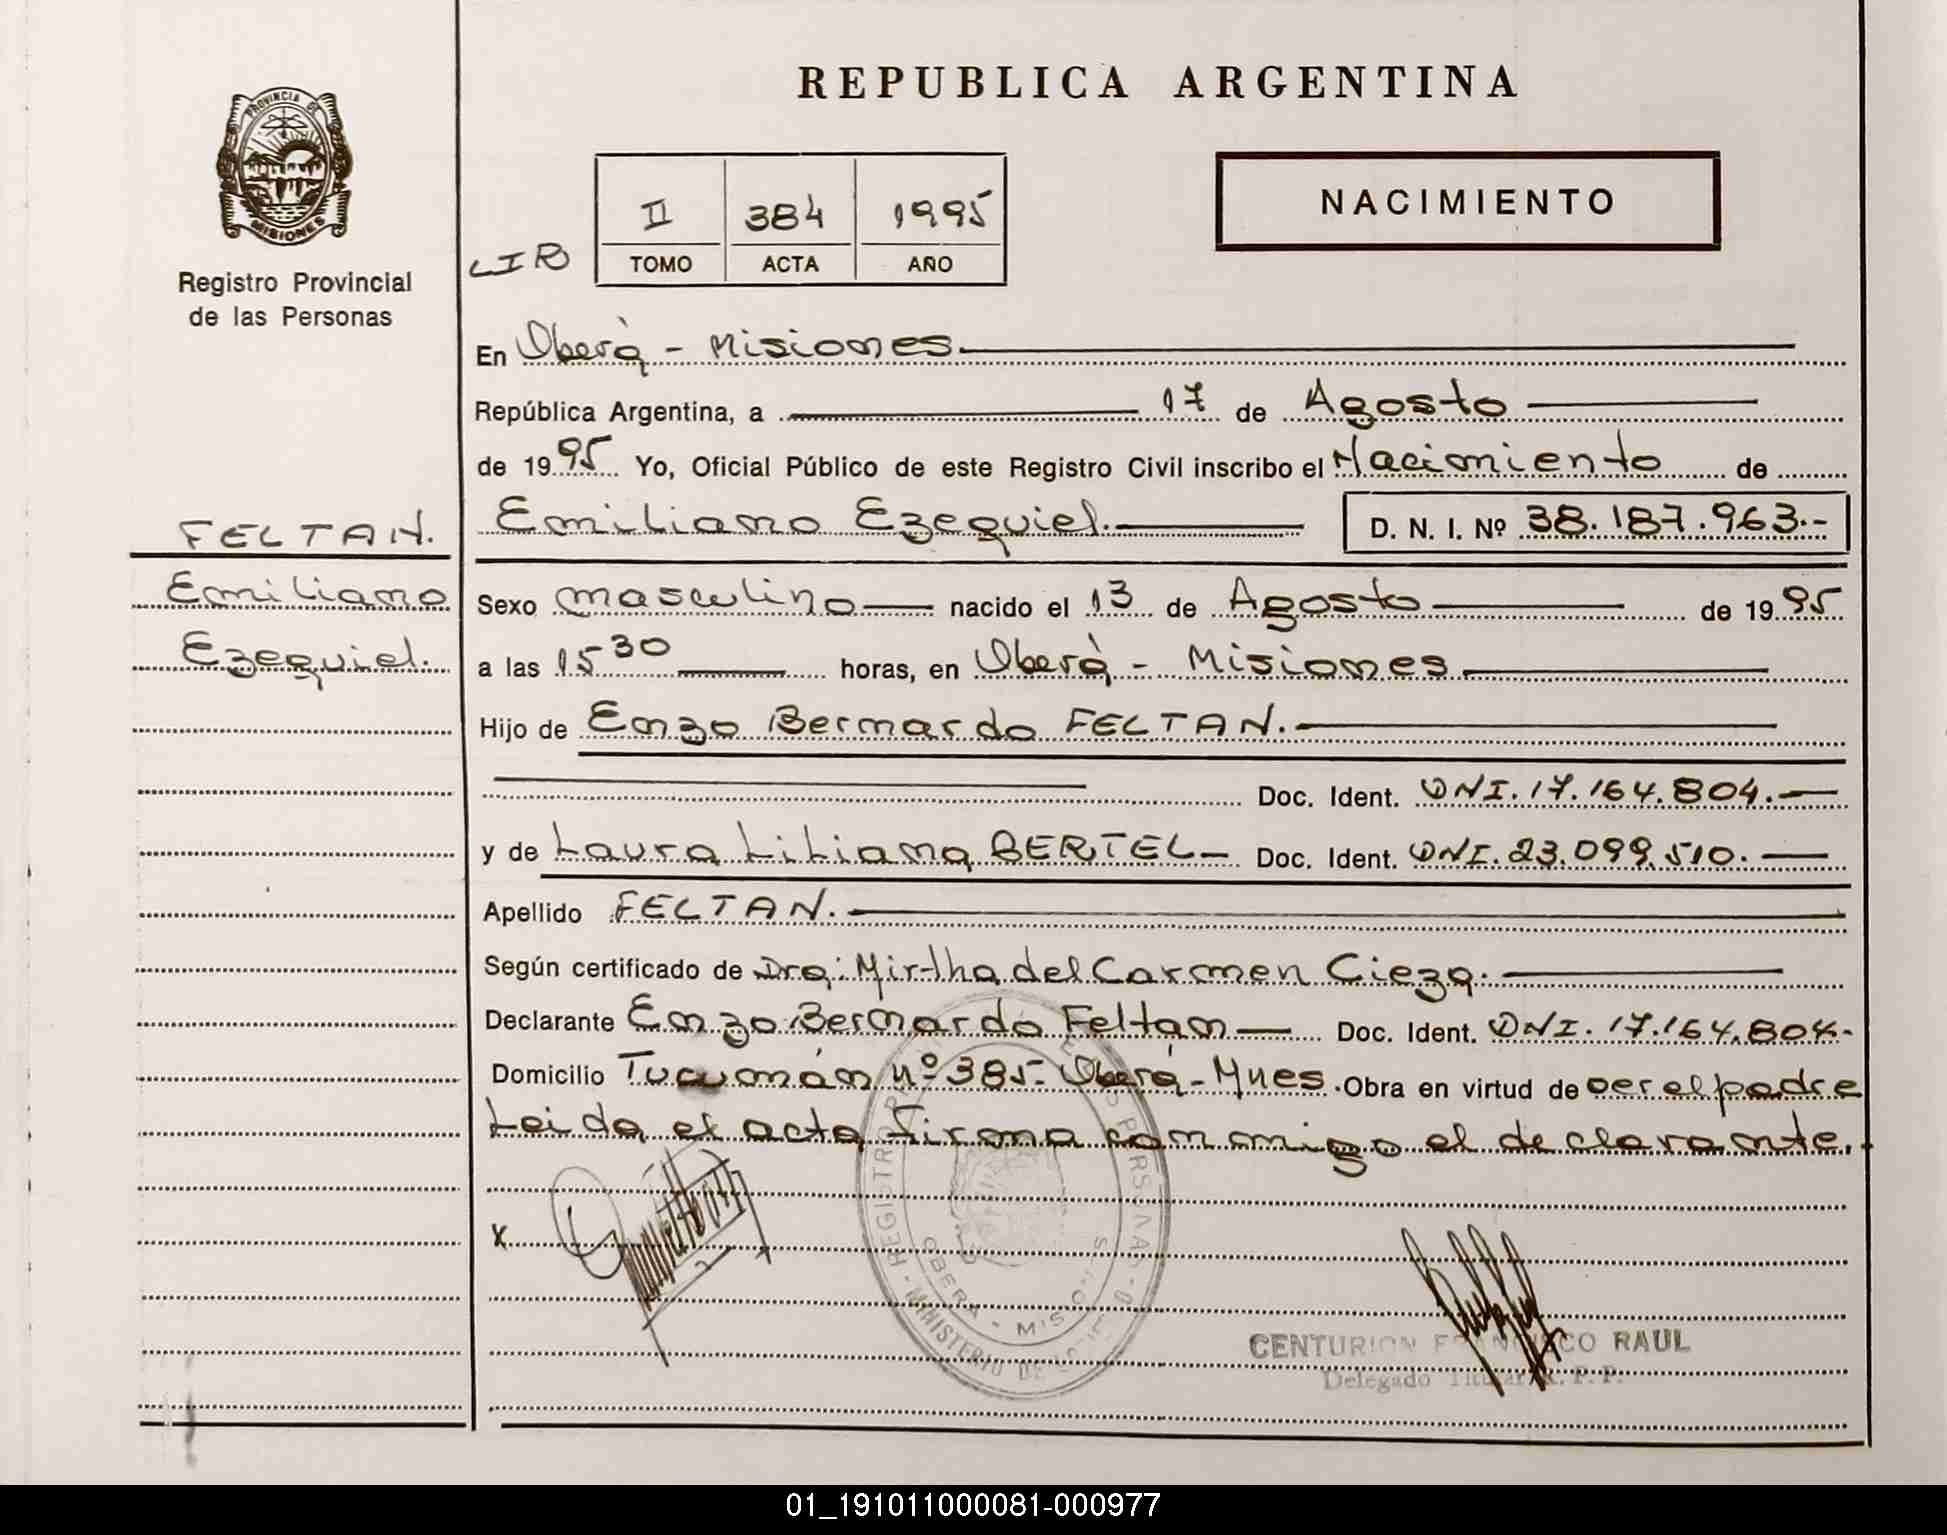 REPUBLICA ARGENTINA
PROVINCIA DE
MISIONES
Registro Provincial
de las Personas
NACIMIENTO
II 384 1995
TOMO ACTA AÑO
En Oberà - Misiones
República Argentina, a 17 de Agosto
de 1995 Yo, Oficial Público de este Registro Civil inscribo el Nacimiento de
FELTAN.
Emiliano
Ezequiel.
Emiliano Ezequiel. D. N. I. Nº 38.187.963.-
Sexo masculino nacido el 13 de Agosto de 1995
a las 15 30 horas, en Oberà - Misiones
Hijo de Enzo Bernardo FELTAN.
Doc. Ident. DNI. 17.164.804.
y de Laura Liliana BERTEL Doc. Ident. DNI. 23.099.510.
Apellido FELTAN.
Según certificado de Dra: Mirtha del Carmen Cieza.
Declarante Enzo Bernardo Feltan Doc. Ident. DNI. 17.164.804.
Domicilio Tucumán nº 385- Oberà - Mnes. Obra en virtud de ser el padre
Leida el acta firma conmigo el declarante.
X
CENTURION FRANCISCO RAUL
Delegado Titular R. P. P.
01_191011000081-000977